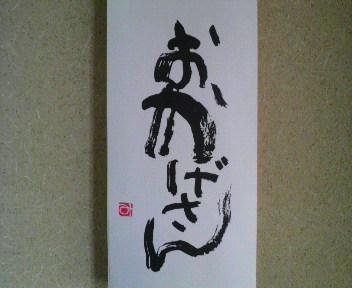 おかげさん